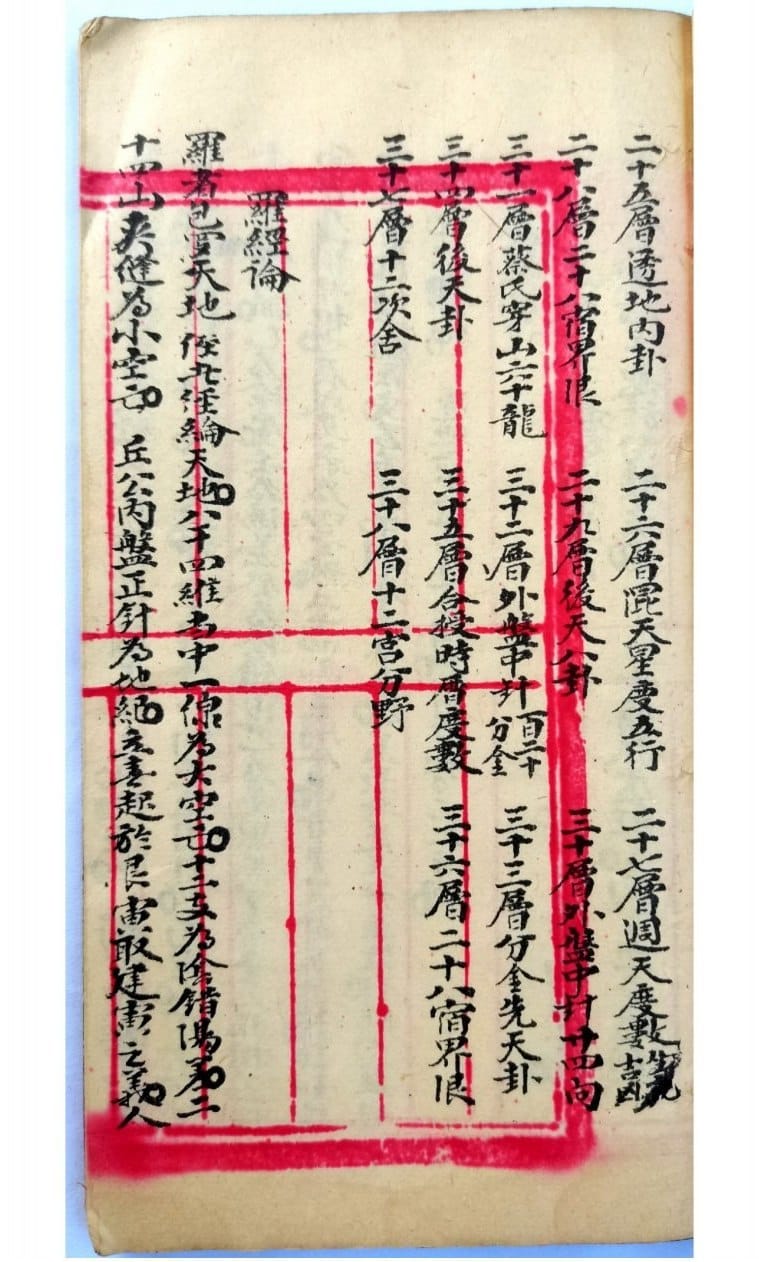 二十五層透地內卦 二十六層渾天星度五行 二十七層週天度數吉凶
二十八層二十八宿界限 二十九層後天八卦 三十層外盤中針十四向
三十一層蔡氏穿山六十龍 三十二層外盤中針百二十分金 三十三層分金先天卦
三十四層後天卦 三十五層合授時曆度數 三十六層二十八宿界限
三十七層十二次舍 三十八層十二宮分野
羅經論
羅者包羅天地 經者經綸天地八干四維當中一線為大空亡十二支為陰錯陽差二
十四山夾縫為小空亡 丘公內盤正針為地紀立春起於艮寅取建寅之義人